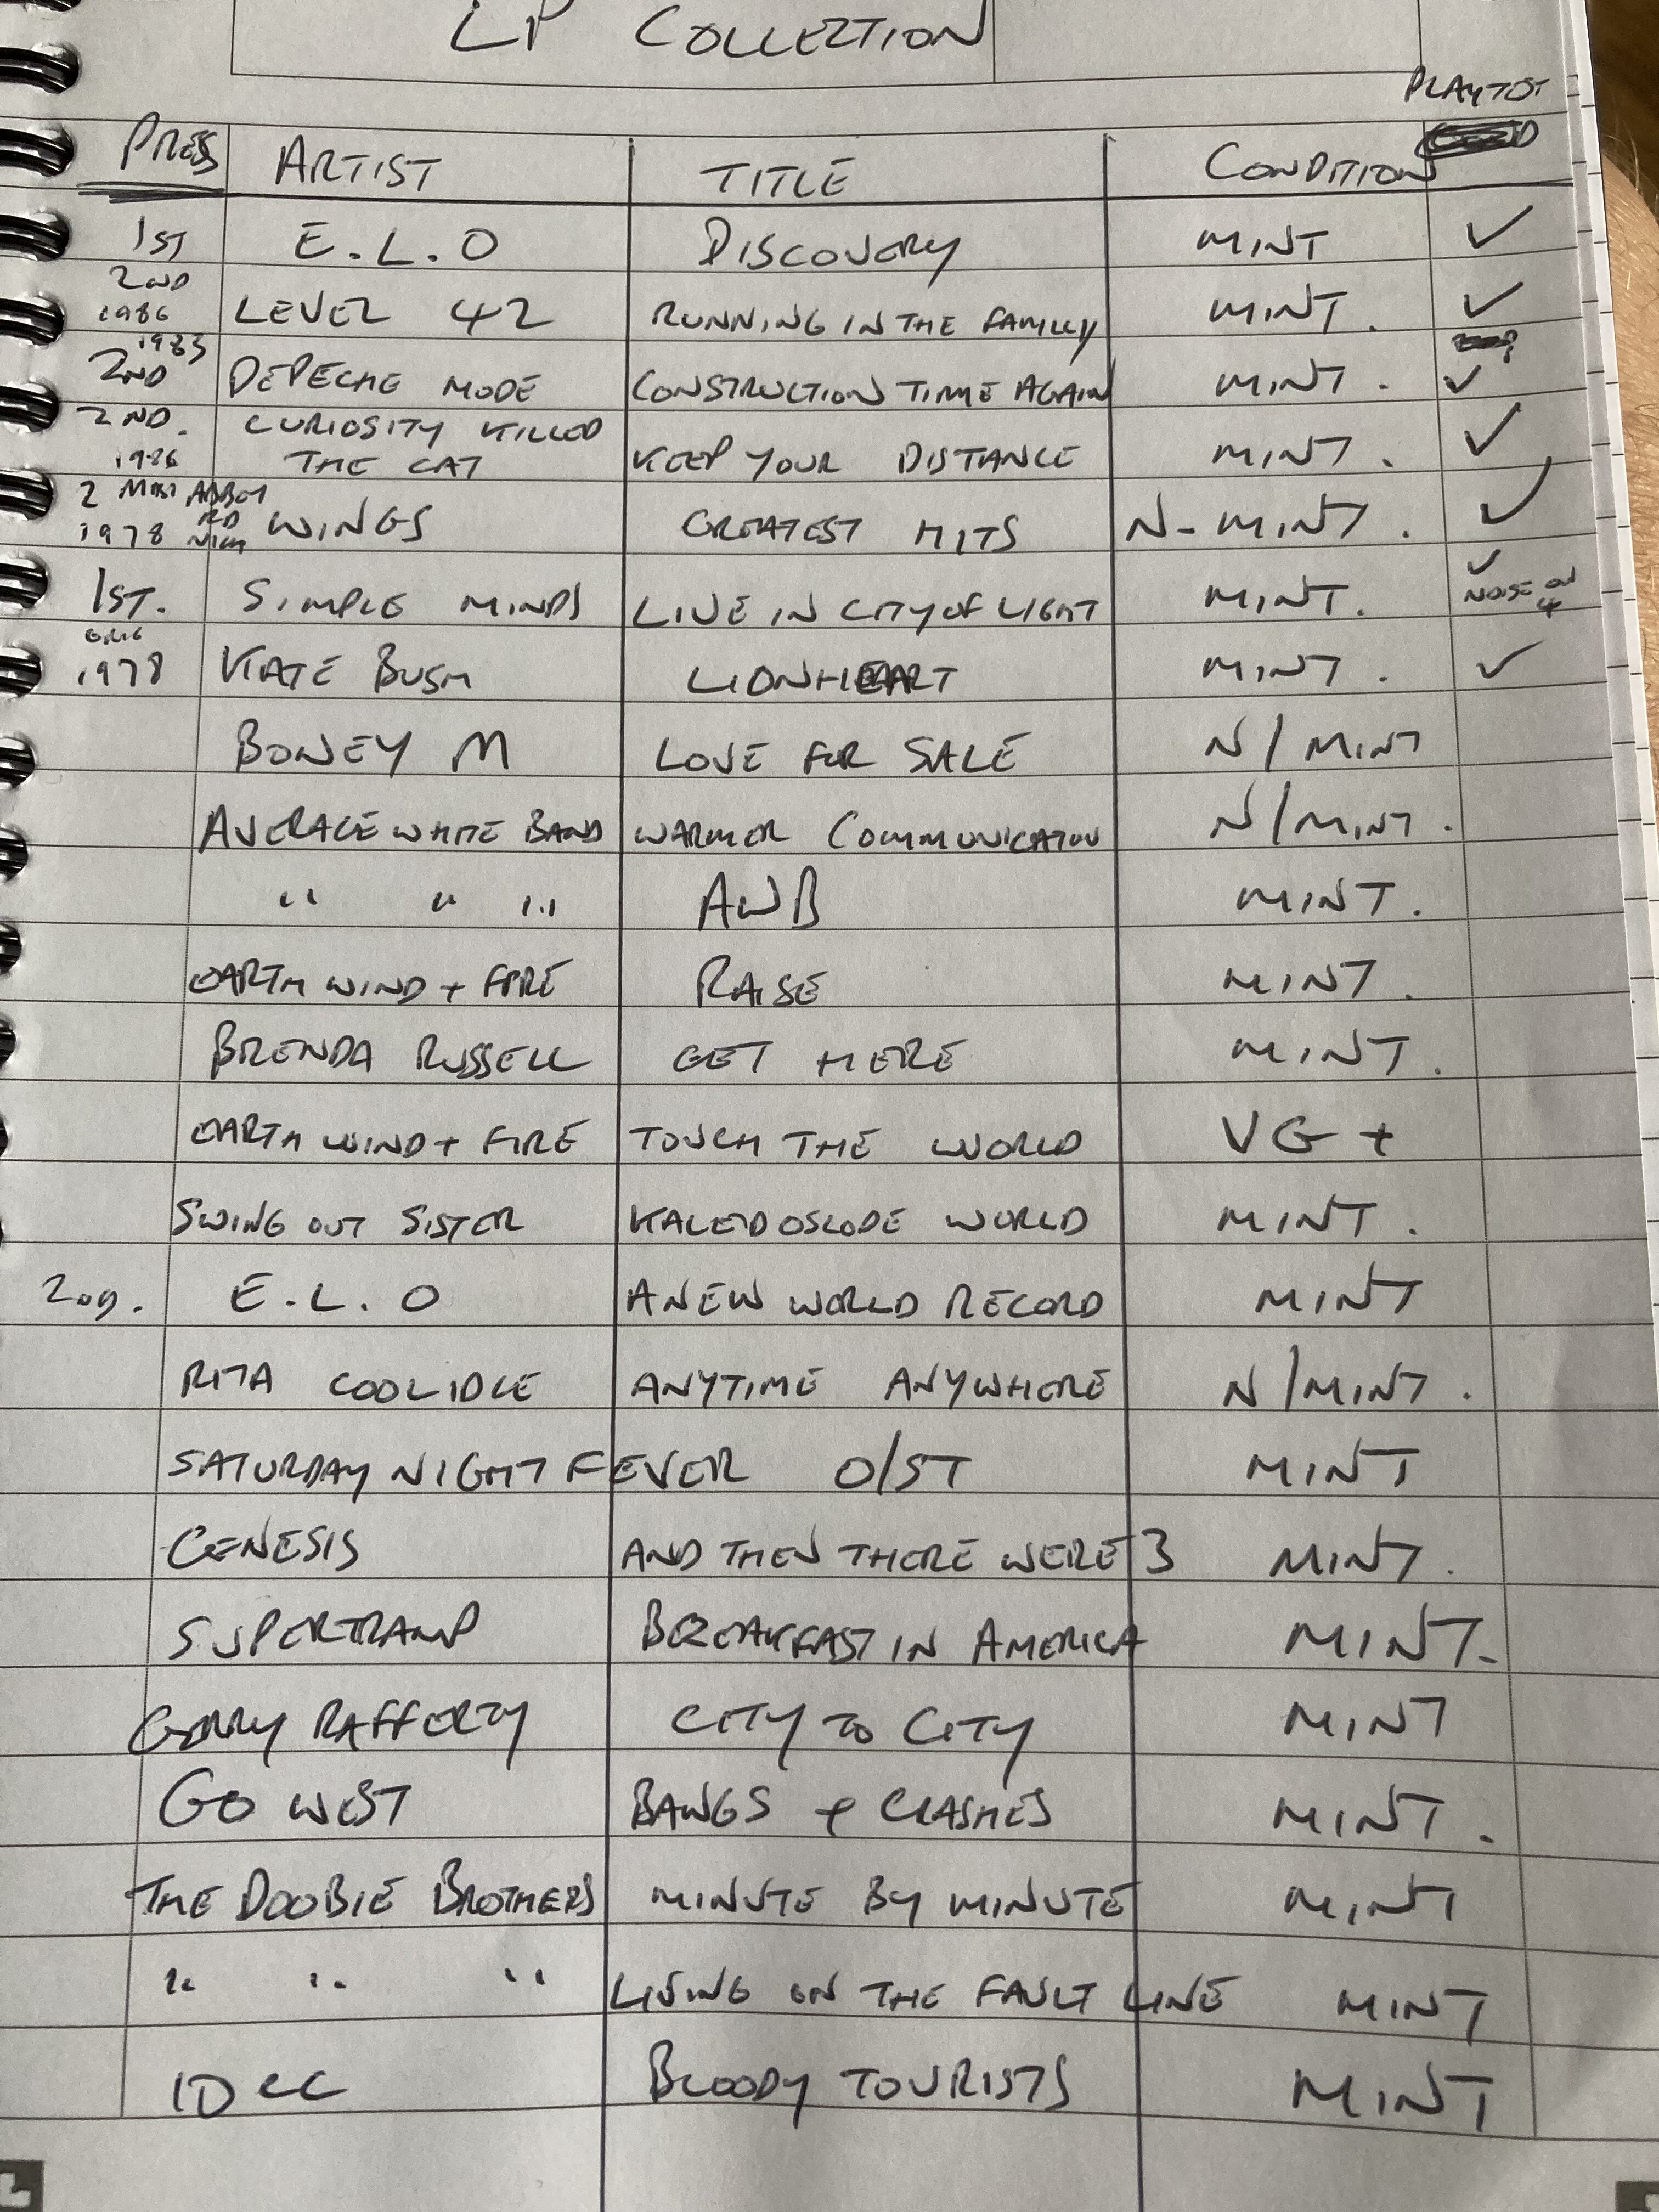 LP COLLECTION
PLAYTEST
PRESS ARTIST TITLE CONDITION
1ST E.L.O DISCOVERY MINT ✓
2ND
1986 LEVEL 42 RUNNING IN THE FAMILY MINT. ✓
1983
2ND DEPECHE MODE CONSTRUCTION TIME AGAIN MINT. ✓
2ND. CURIOSITY KILLED
1986 THE CAT KEEP YOUR DISTANCE MINT. ✓
2 ABBEY
RD
1978 WINGS GREATEST HITS N-MINT. ✓
1ST. SIMPLE MINDS LIVE IN CITY OF LIGHT MINT. ✓
NOISE ON 4
ORIG
1978 KATE BUSH LIONHEART MINT. ✓
BONEY M LOVE FOR SALE N/MINT
AVERAGE WHITE BAND WARMER COMMUNICATION N/MINT.
" " " AWB MINT.
EARTH WIND + FIRE RAISE MINT.
BRENDA RUSSELL GET HERE MINT.
EARTH WIND + FIRE TOUCH THE WORLD VG +
SWING OUT SISTER KALEIDOSCOPE WORLD MINT.
2ND. E.L.O A NEW WORLD RECORD MINT
RITA COOLIDGE ANYTIME ANYWHERE N/MINT.
SATURDAY NIGHT FEVER O/ST MINT
GENESIS AND THEN THERE WERE 3 MINT.
SUPERTRAMP BREAKFAST IN AMERICA MINT.
GERRY RAFFERTY CITY TO CITY MINT
GO WEST BANGS & CRASHES MINT.
THE DOOBIE BROTHERS MINUTE BY MINUTE MINT
" " " LIVING ON THE FAULT LINE MINT
10CC BLOODY TOURISTS MINT